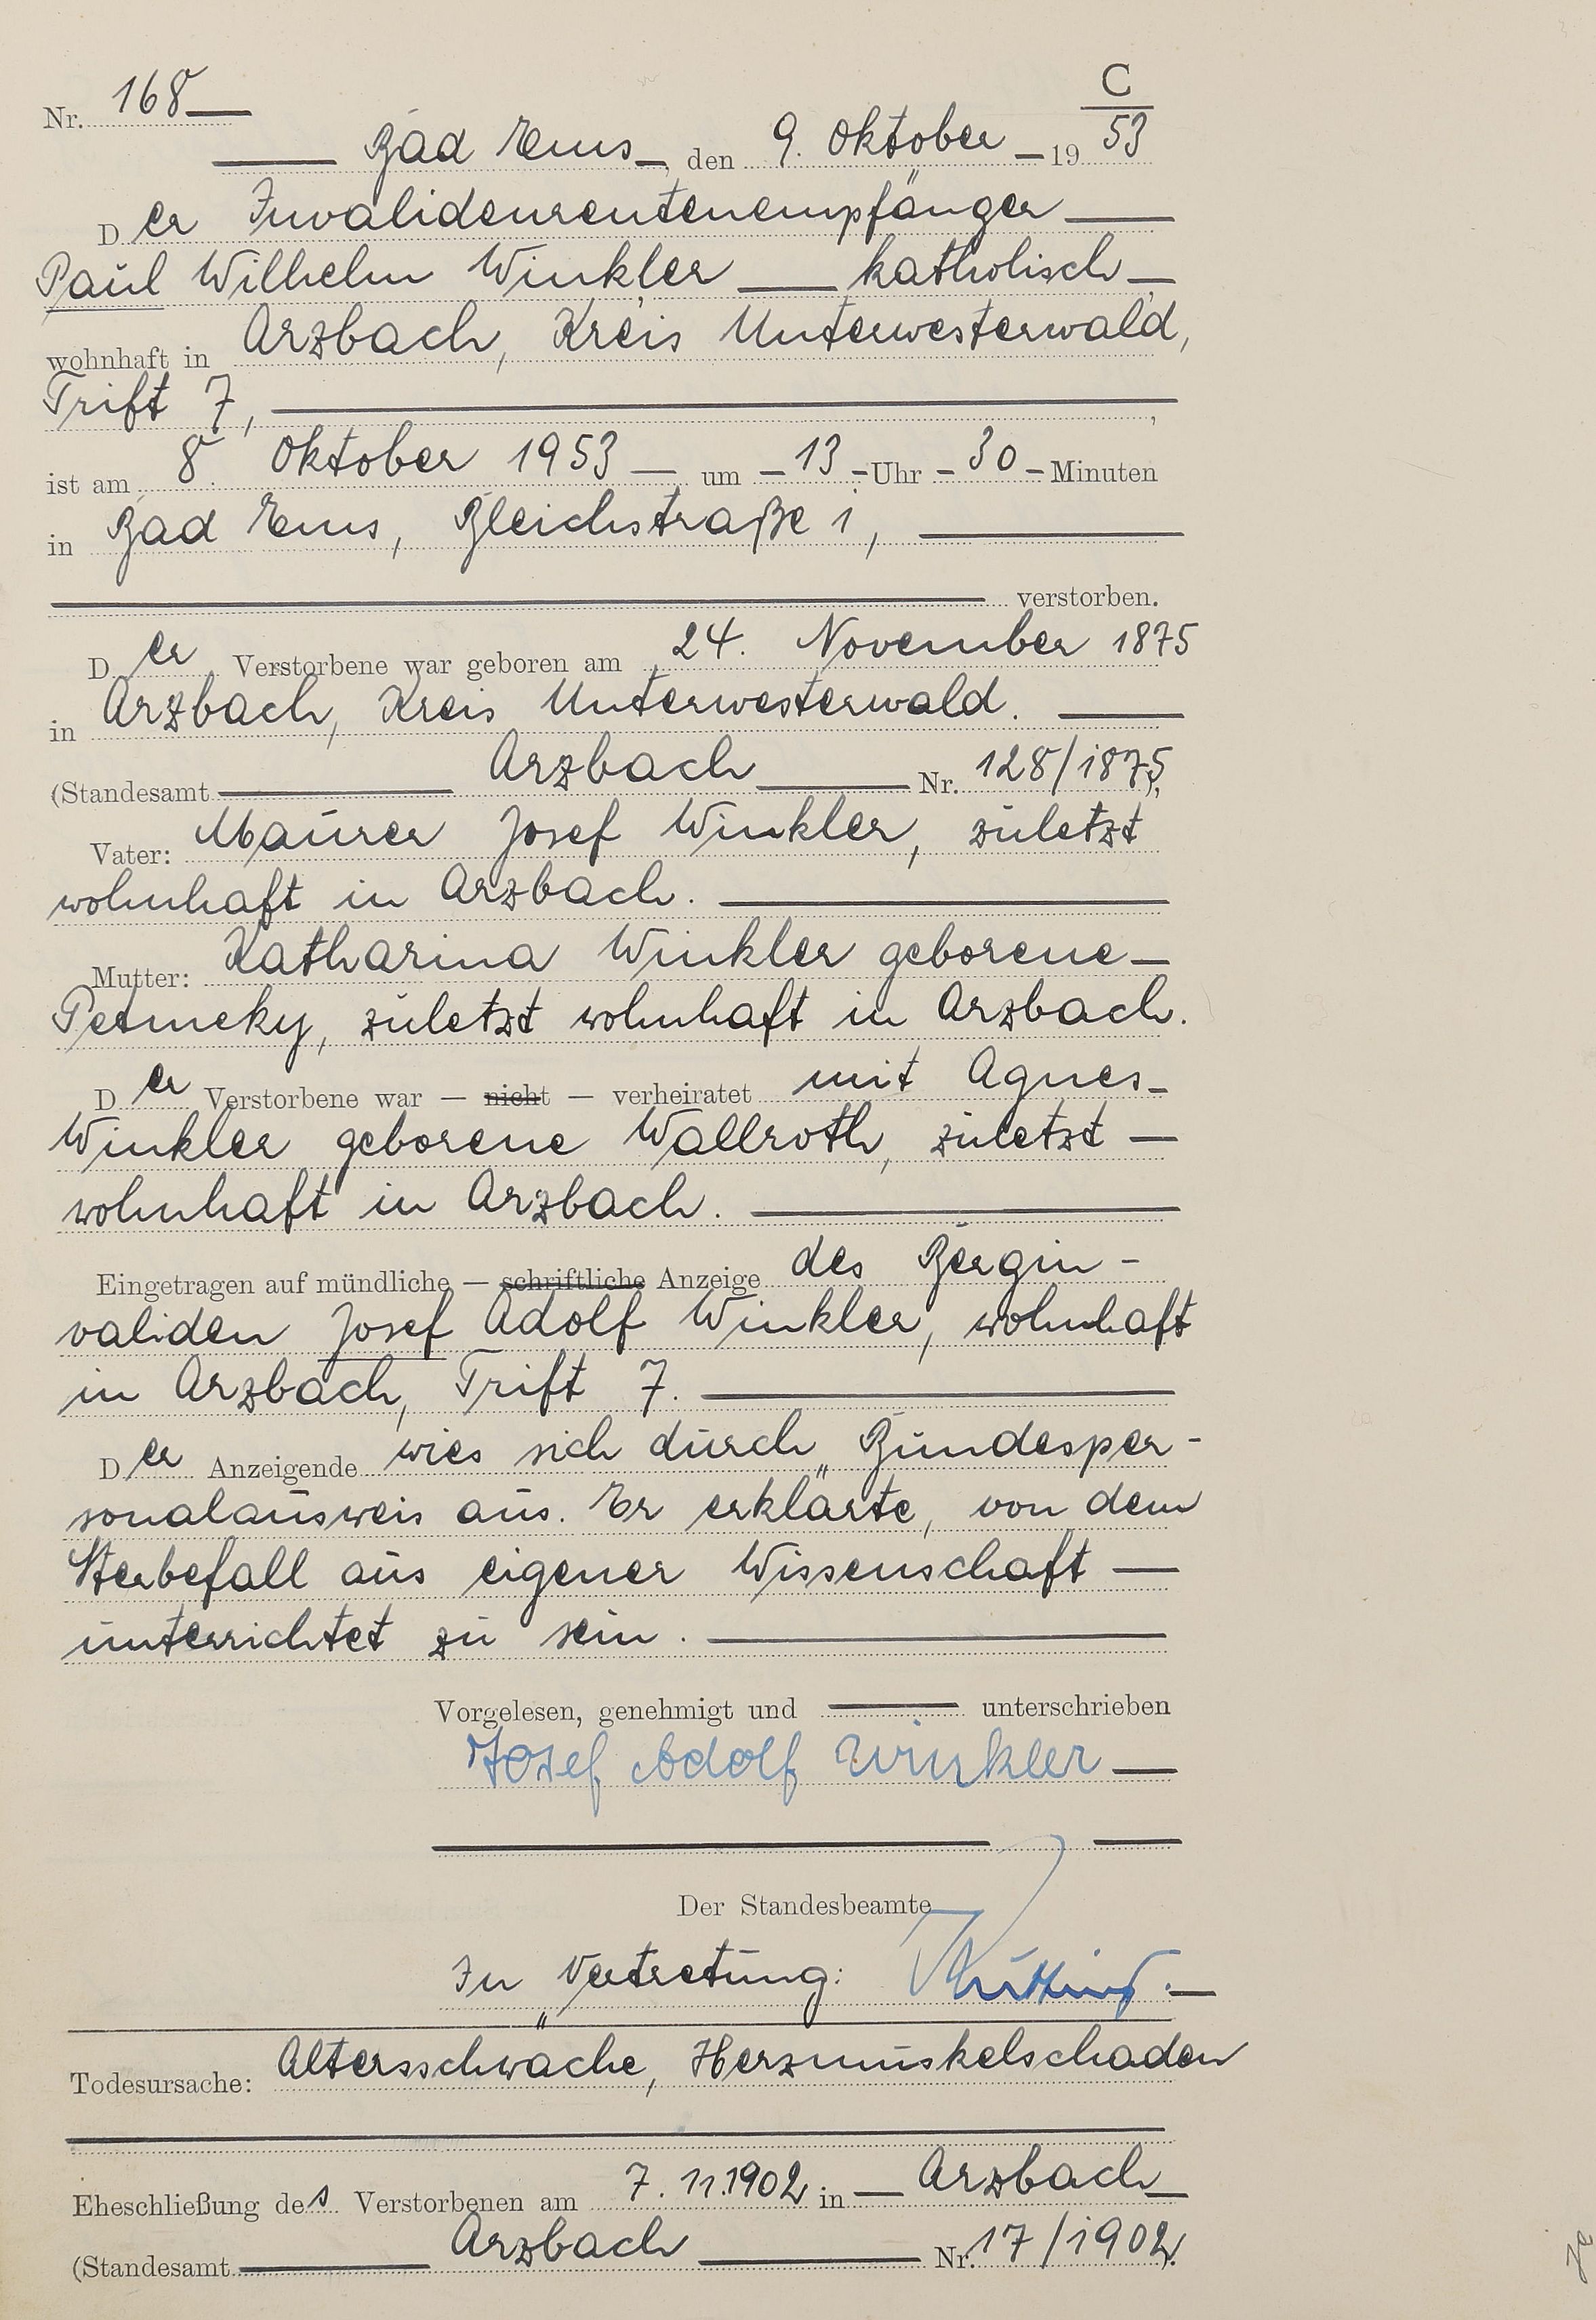 C
Nr. 168
Bad Ems, den 9. Oktober 19 53
Der Invalidenrentenempfänger
Paul Wilhelm Winkler katholisch
wohnhaft in Arzbach, Kreis Unterwesterwald,
Trift 7, ,
ist am 8. Oktober 1953 um 13 Uhr 30 Minuten
in Bad Ems, Bleichstraße 1,
verstorben.
Der Verstorbene war geboren am 24. November 1875
in Arzbach, Kreis Unterwesterwald.
(Standesamt Arzbach Nr. 128/1875),
Vater: Maurer Josef Winkler, zuletzt
wohnhaft in Arzbach.
Mutter: Katharina Winkler geborene
Petmeky, zuletzt wohnhaft in Arzbach.
Der Verstorbene war — nicht — verheiratet mit Agnes
Winkler geborene Wallroth, zuletzt
wohnhaft in Arzbach.
Eingetragen auf mündliche — schriftliche Anzeige des Bergin-
validen Josef Adolf Winkler, wohnhaft
in Arzbach, Trift 7.
Der Anzeigende wies sich durch Bundesper-
sonalausweis aus. Er erklärte, von dem
Sterbefall aus eigener Wissenschaft
unterrichtet zu sein.
Vorgelesen, genehmigt und unterschrieben
Josef Adolf Winkler
Der Standesbeamte
In Vertretung:
Todesursache: Altersschwäche, Herzmuskelschaden
Eheschließung des Verstorbenen am 7.11.1902 in Arzbach
(Standesamt Arzbach Nr. 17/1902).